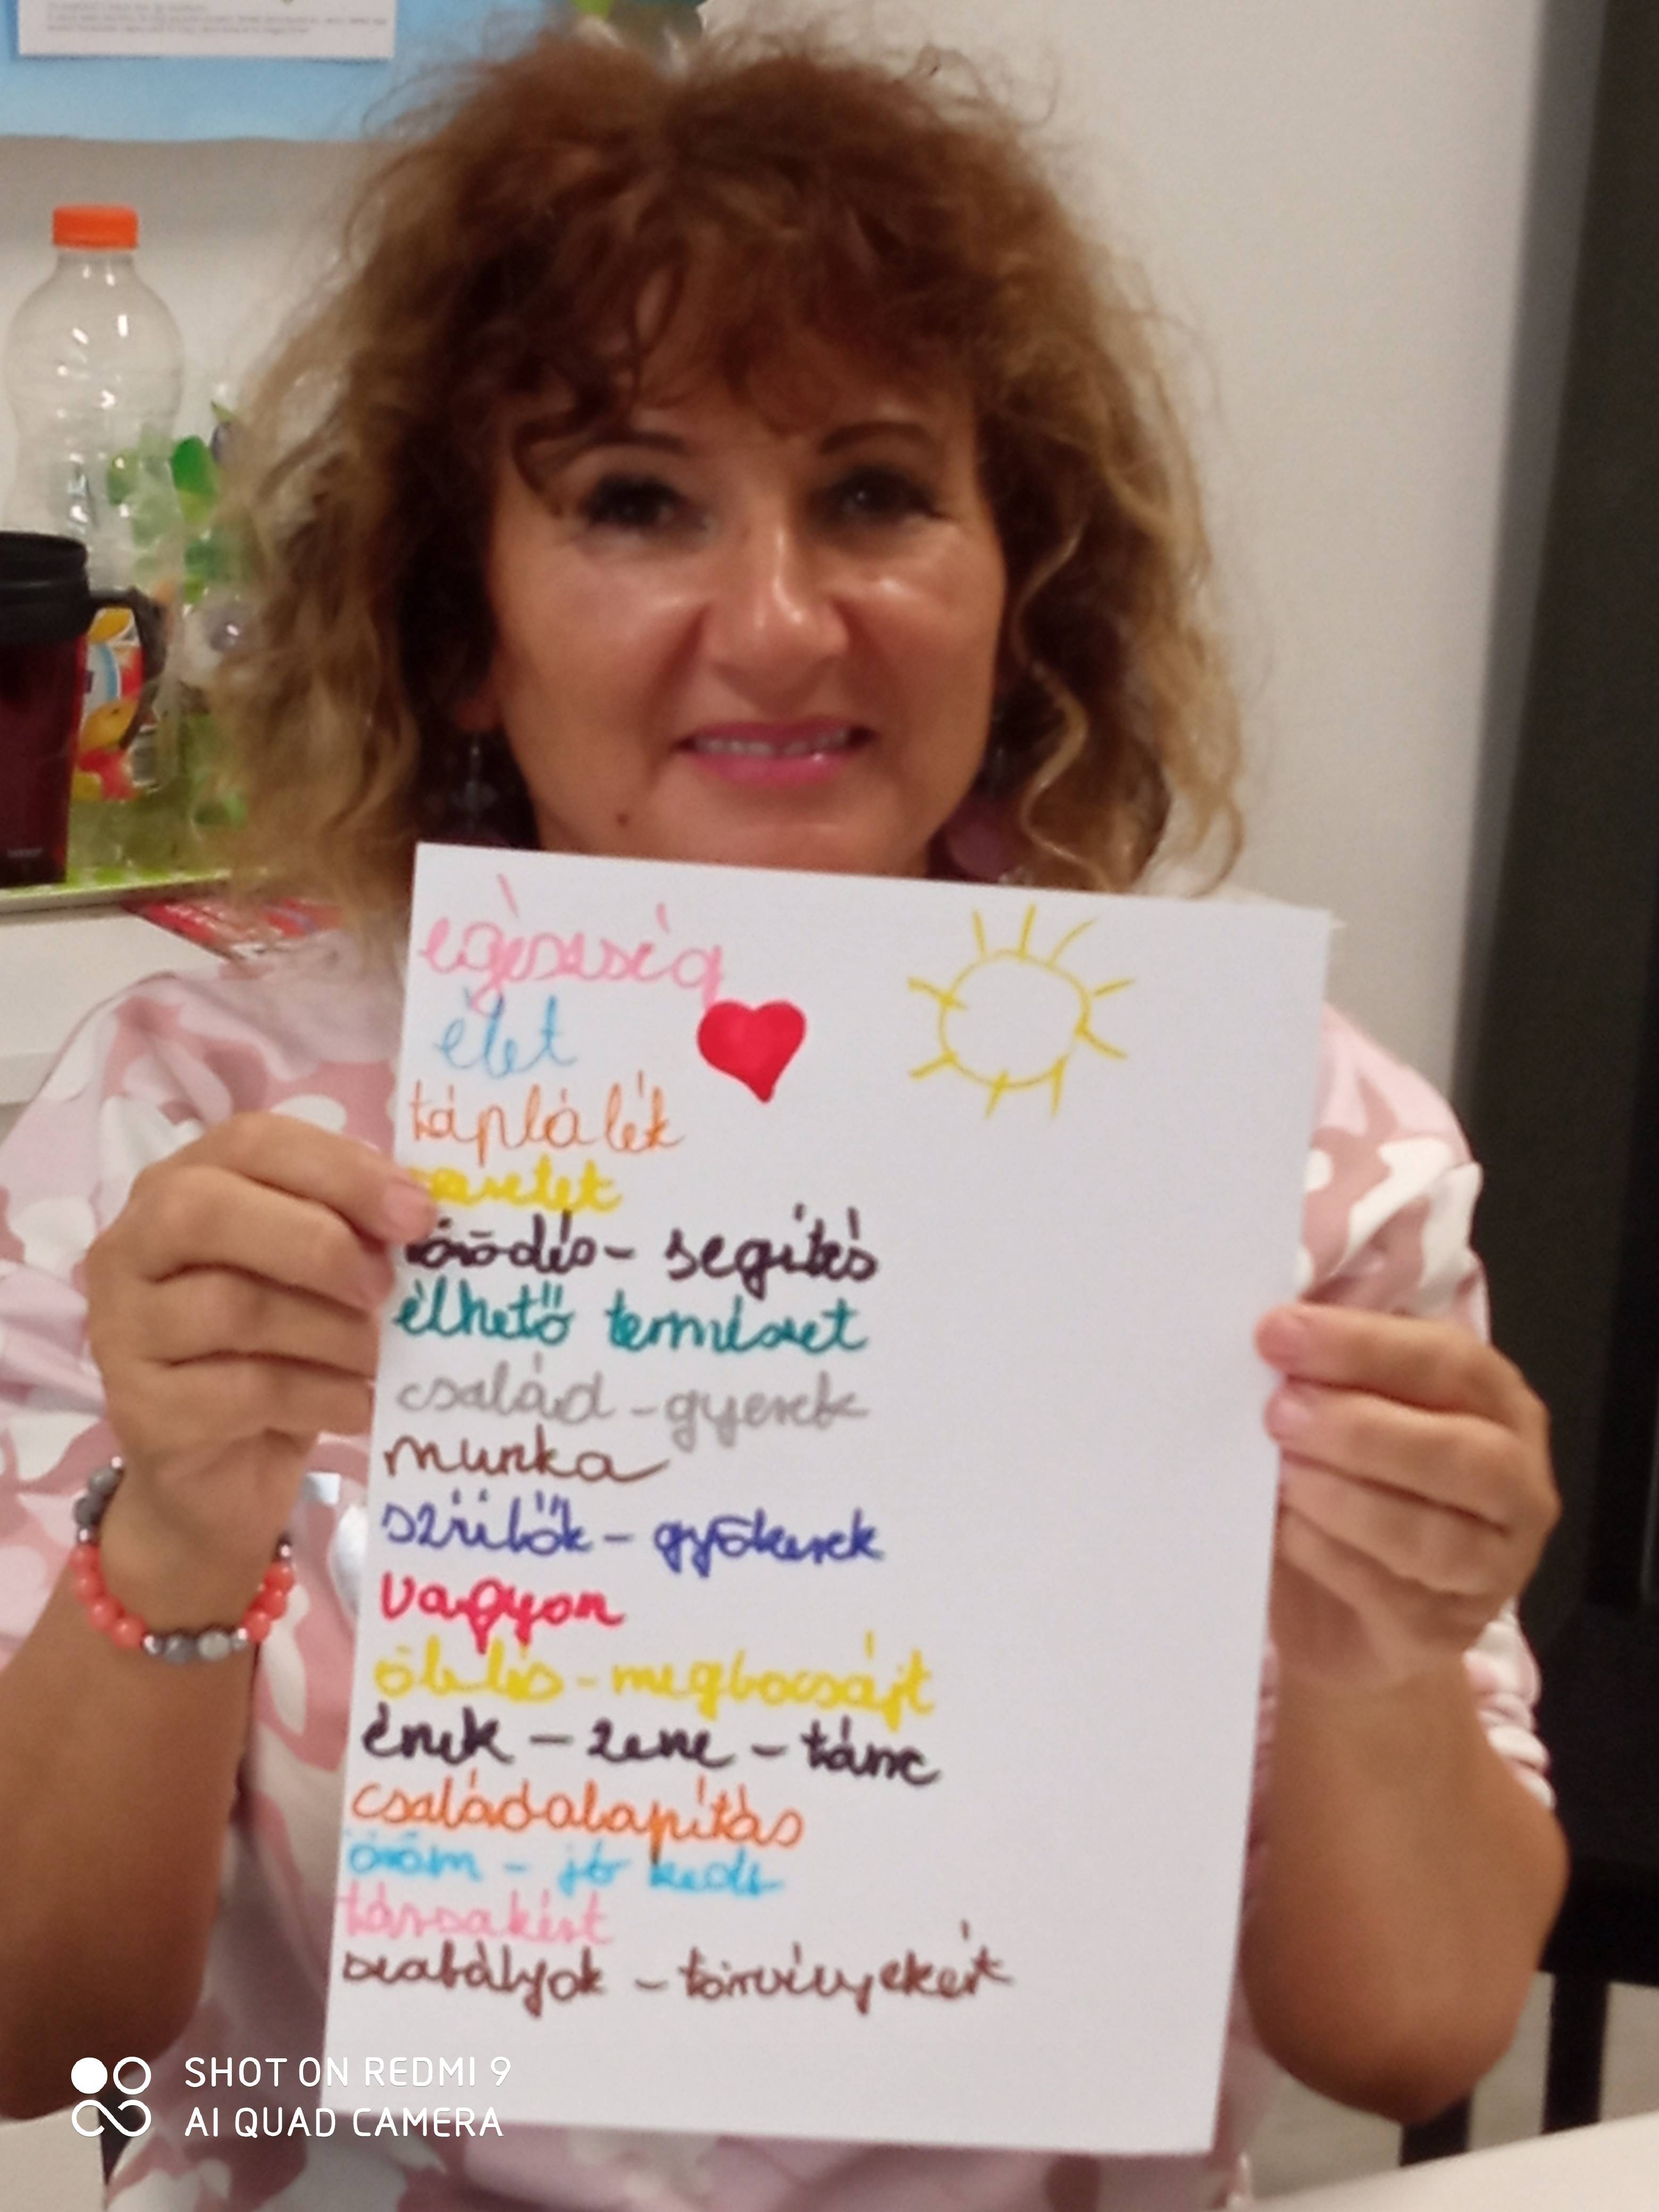 egészség
élet
táplálék
szeretet
törődés - segítés
élhető természet
család - gyerek
munka
szülők - gyökerek
vagyon
ölelés - megbocsájt
ének - zene - tánc
családalapítás
öröm - jó kedv
társakért
szabályok - törvényekért
SHOT ON REDMI 9
AI QUAD CAMERA